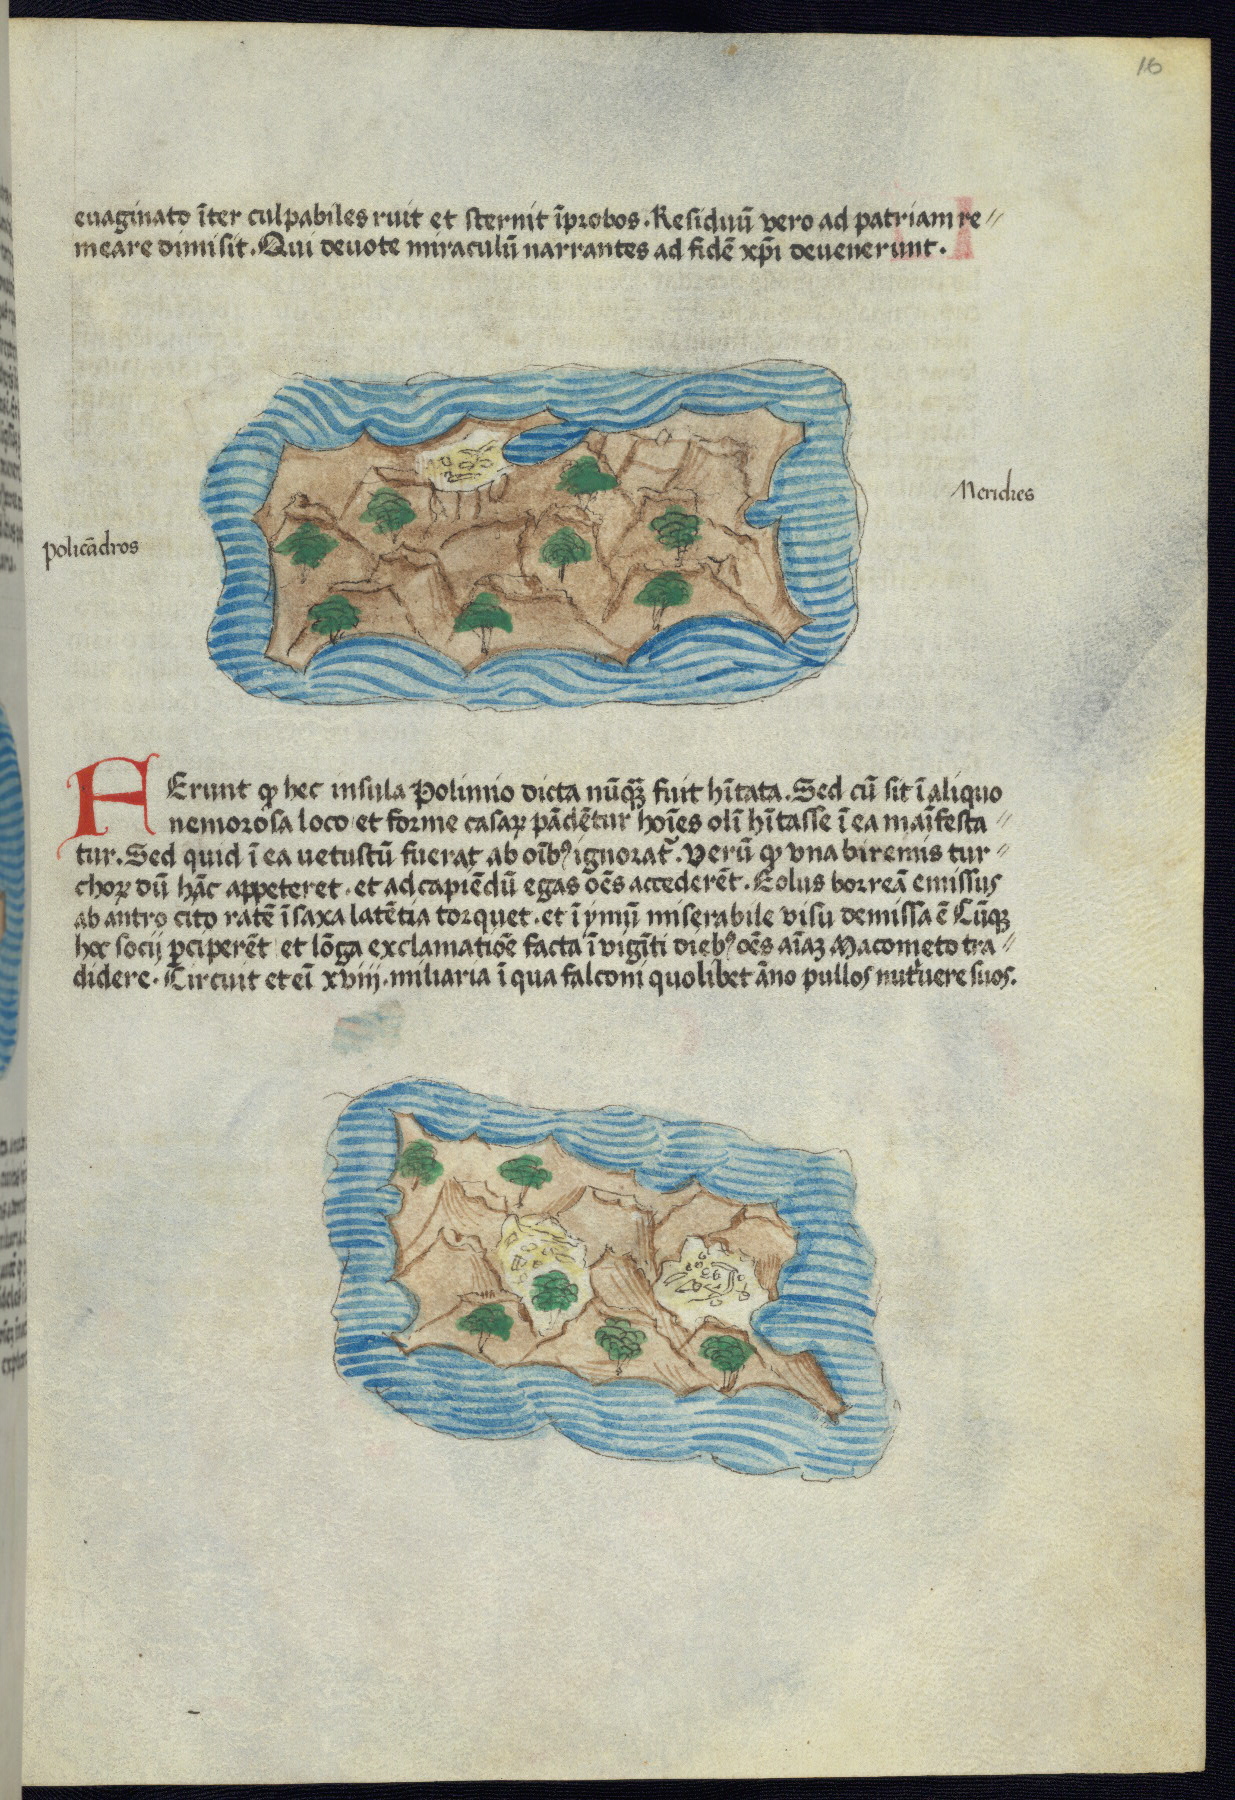 16
euaginato īter culpabiles ruit et sternit īprobos. Residuū vero ad patriam re〃
meare dimisit. Qui deuote miraculū narrantes ad fidē xp̄i deuenerunt.
Meridies
policādros
FErunt ꝙ hec insula Polimio dicta nūqꝫ fuit hītata. Sed cū sit ī aliquo
nemorosa loco et forme casaꝝ pādētur hoīes olī hītasse ī ea maīfesta〃
tur. Sed quid ī ea uetustū fuerat ab oībꝰ ignorat̄. Verū ꝙ vna biremis tur〃
choꝝ dū hāc appeteret. et ad capiēdū egas oēs accederēt. Eolus borreā emissus
ab antro cito ratē ī saxa latētia torquet. et ī ymū miserabile visu demissa ē Cūqꝫ
hec socij ꝑciperēt et lōga exclamatiōe facta ī vigīti diebꝰ oēs aīaꝫ Macometo tra〃
didere. Circuit et eī xviij. miliaria ī qua falconi quolibet āno pullos nut̓uere suos.